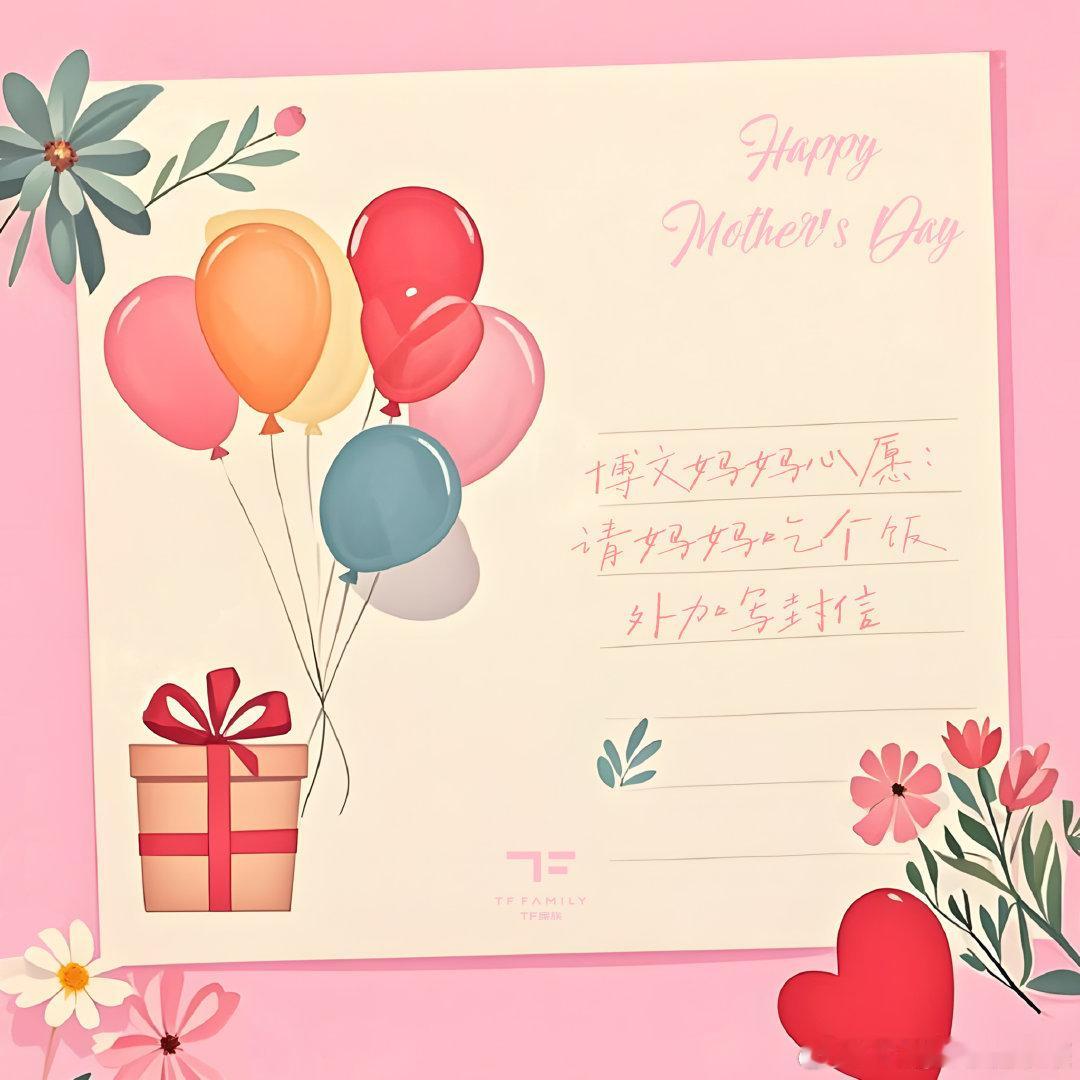 Happy
Mother's Day
博文妈妈心愿：
请妈妈吃个饭
外加写封信
TF FAMILY
TF家族